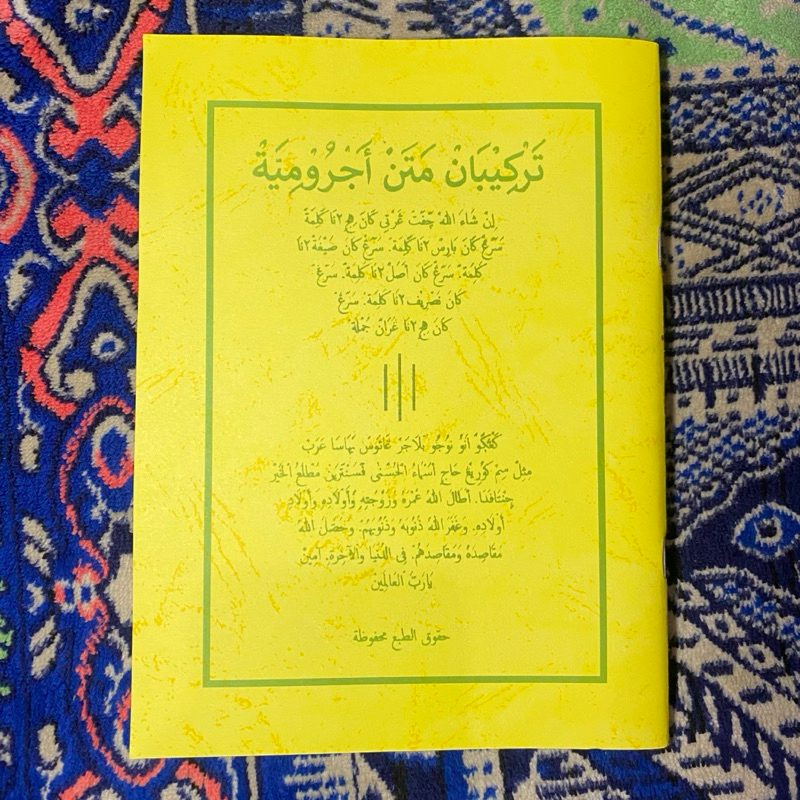 تَرْكِيْبَانْ مَتَنْ أَجْرُوْمِيَةْ
اِنْ شَاءَ اللهْ چٓفَتْ غَرْتِي كَانْ هِجِ٢نَا كَلِمَةْ
سَرْڠْ كَانْ بَارِسْ٢نَا كَلِمَةْ. سَرْڠْ كَانْ صِيْغَةْ٢نَا
كَلِمَةْ. سَرْڠْ كَانْ أَصَلْ٢نَا كَلِمَةْ. سَرْڠْ
كَانْ تَصْرِيْف٢نَا كَلِمَةْ. سَرْڠْ
كَانْ هِجِ٢نَا جُمْلَةْ
اَنُوْ نُوْجُو بَلَاجَرْ بَهَاسَا عَرَبْ
حَاجِ أَسْمَاءُ الْحُسْنَى مَطْلَعُ الْخَيْر
أَطَالَ اللهُ عُمْرَهُ وَزَوْجَتِهِ وَأَوْلَادِهِ وَأَوْلَادِ
أَوْلَادِهِ. وَغَفَرَ اللهُ ذُنُوْبَهُ وَذُنُوْبَهُمْ. وَحَصَّلَ اللهُ
مَقَاصِدَهُ وَمَقَاصِدَهُمْ. فِي الدُّنْيَا وَالْآخِرَةِ. آمِيْنَ
يَارَبَّ الْعَالَمِيْنَ
حقوق الطبع محفوظة